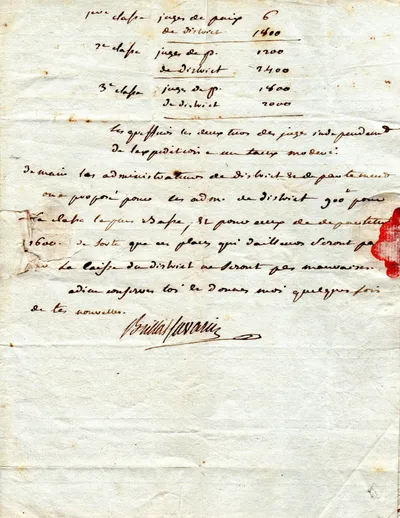 1ere classe juges de paix 6
de district 1800
2e classe juges de p. 1200
de district 2400
3e classe juges de p. 1600
de district 2000
Les greffiers les deux tiers des juges independ
de l'expedition a un taux moderé
demain les administrateurs de district & de
ont proposé pour les adm. de district 900 pour
la classe la plus basse, & pour ceux de departement
1600. de sorte que ces places qui d'ailleurs seront
par la caisse du district ne seront pas mauvaises.
adieu conserves toi & donnes moi quelques fois
de tes nouvelles.
Brillat Savarin